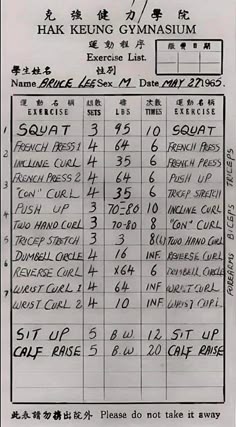 克強健力學院
HAK KEUNG GYMNASIUM
運動程序
Exercise List.
學生姓名 性別
Name BRUCE LEE Sex M Date MAY 27 1965.
運動名稱 組數 磅 次數 運動名稱
EXERCISE SETS LBS TIMES EXERCISE
SQUAT 3 95 10 SQUAT
FRENCH PRESS 1 4 64 6 FRENCH PRESS
INCLINE CURL 4 35 6 FRENCH PRESS
FRENCH PRESS 2 4 64 6 PUSH UP
"CON" CURL 4 35 6 TRICEP STRETCH
PUSH UP 3 70-80 10 INCLINE CURL
TWO HAND CURL 3 70-80 8 "CON" CURL
TRICEP STRETCH 3 3 8(6) TWO HAND CURL
DUMBELL CIRCLE 4 16 INF REVERSE CURL
REVERSE CURL 4 x64 6 DUMBELL CIRCLE
WRIST CURL 1 4 64 INF WRIST CURL
WRIST CURL 2 4 10 INF WRIST CURL
SIT UP 5 B.W 12 SIT UP
CALF RAISE 5 B.W 20 CALF RAISE
此表請勿携出院外 Please do not take it away
TRICEPS
BICEPS
FOREARMS